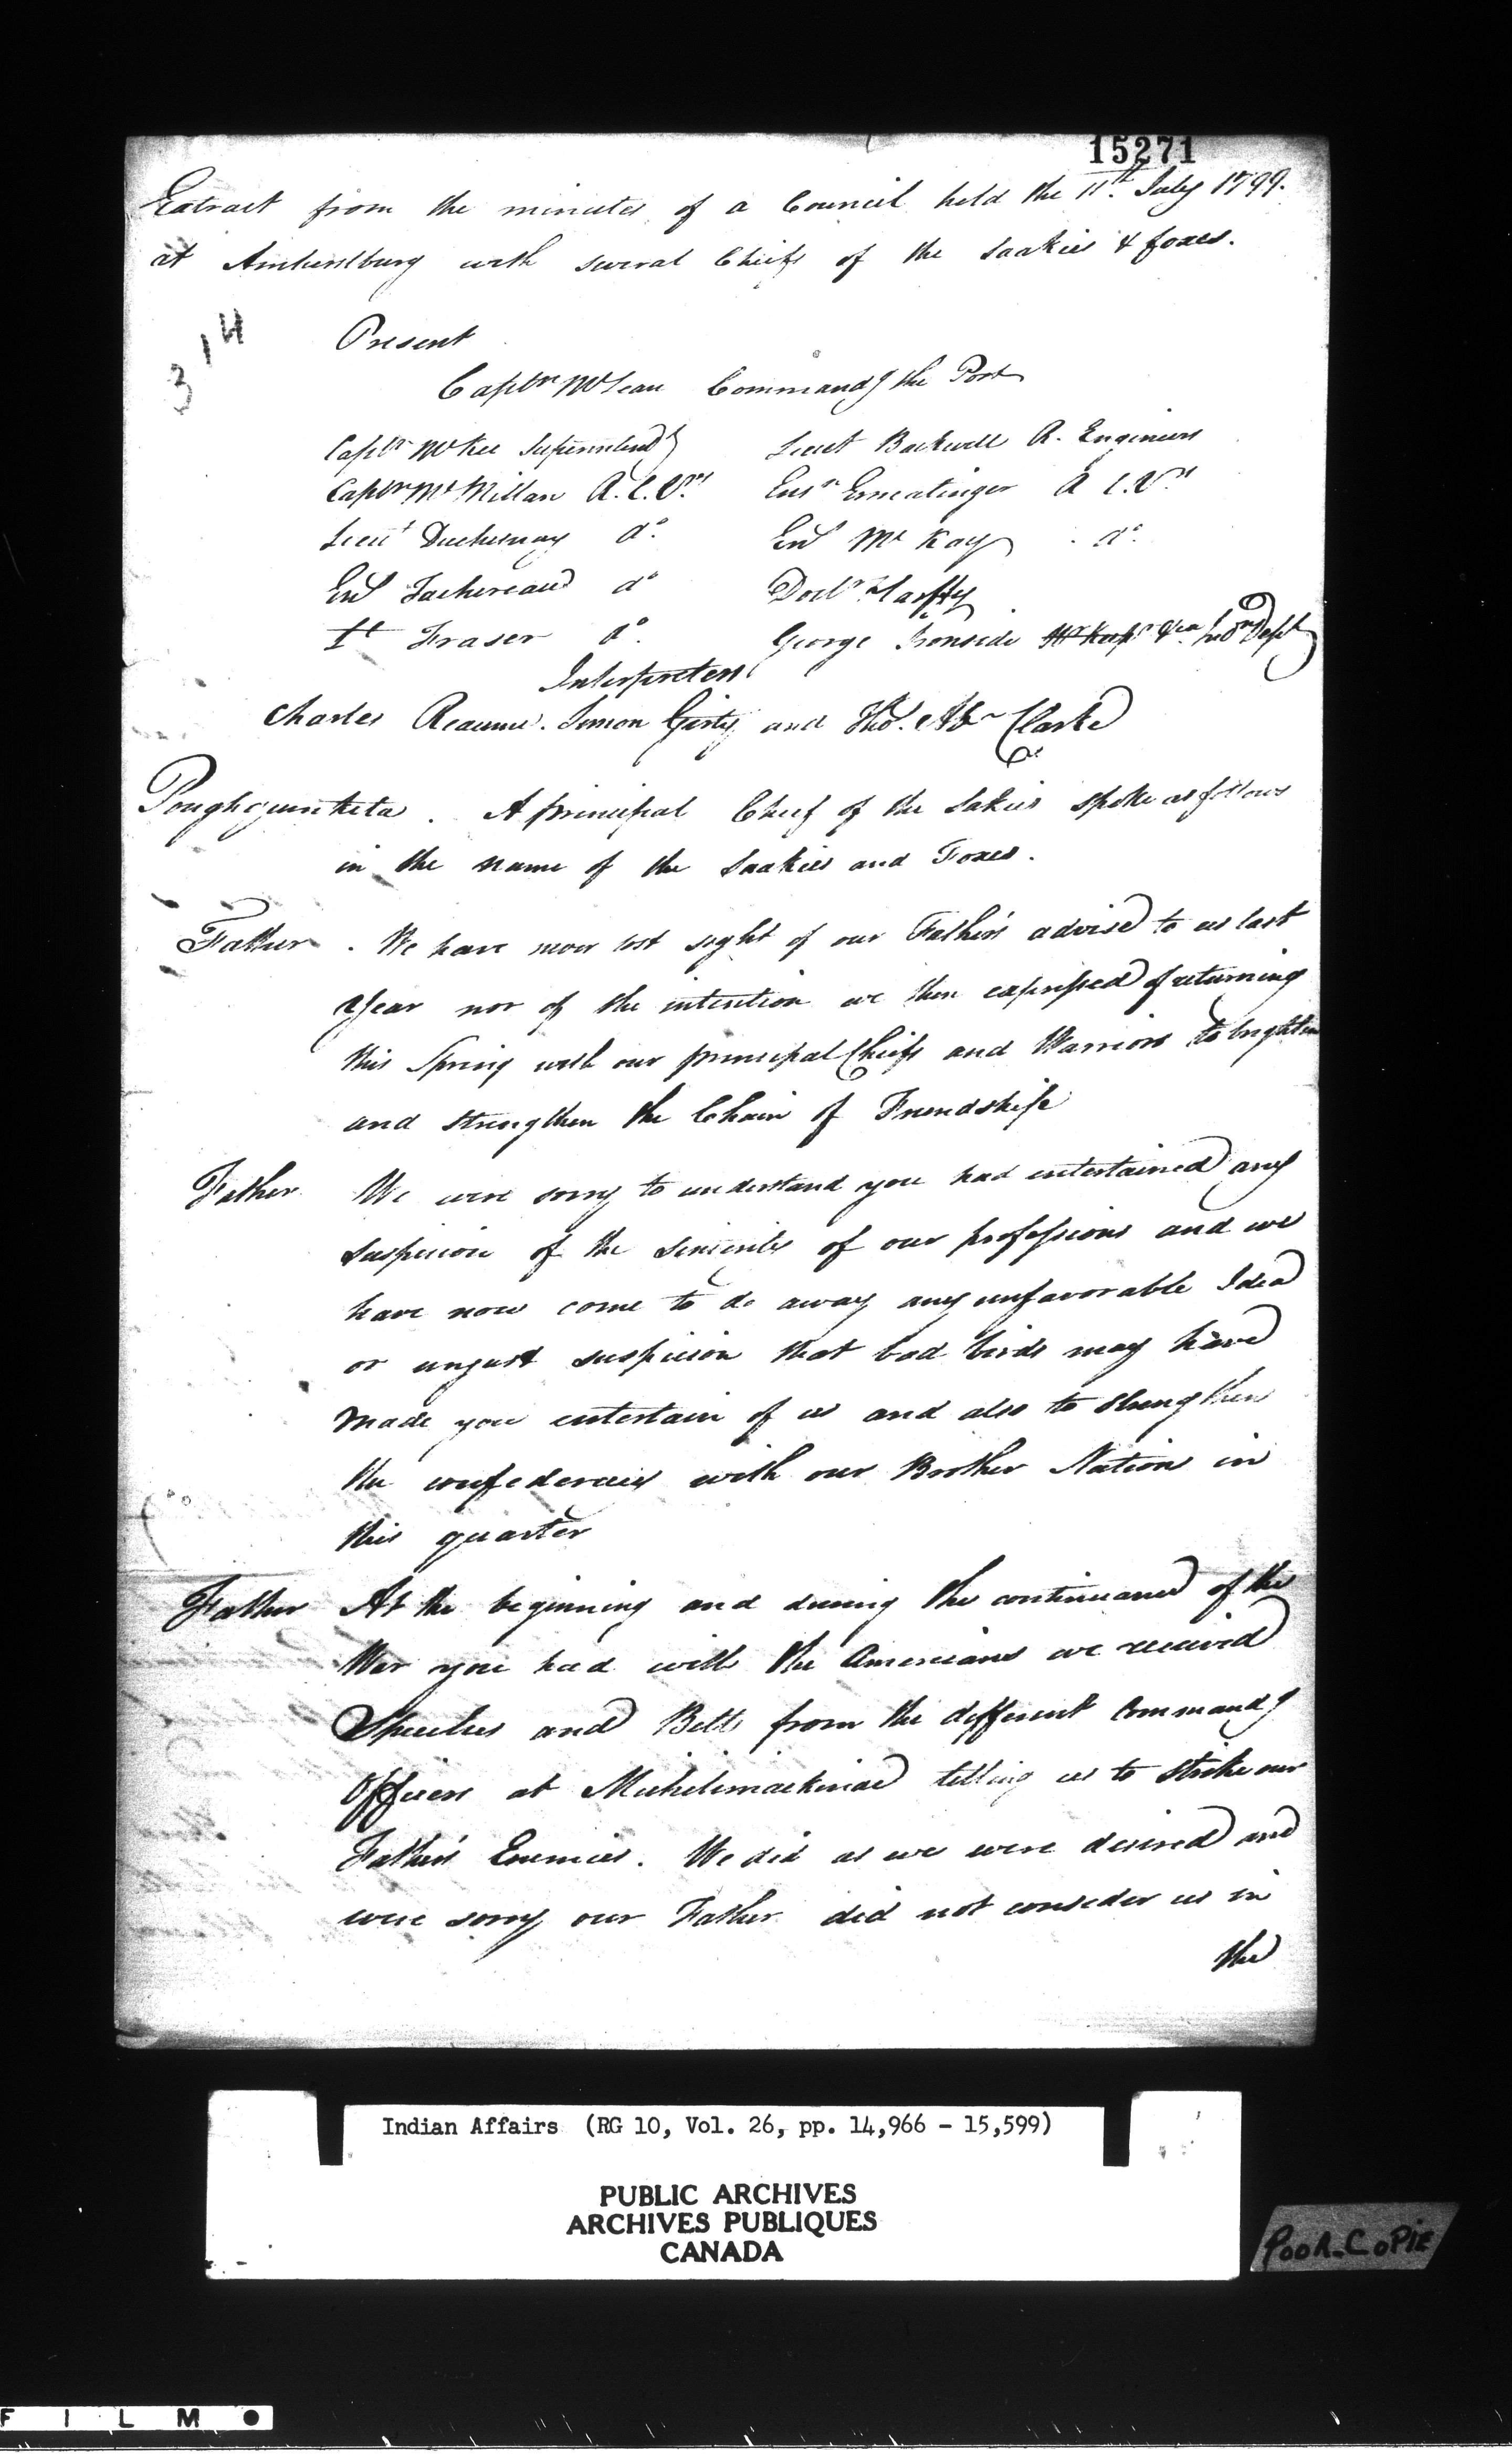 15271
Extract from the minutes of a Council held the 11th. July 1799.
at Amherstburg with several Chiefs of the Saakies & foxes.
314
Present
Captn McLean Commandg the Post
Captn McKee Superintendt Lieut Backwell R. Engineers
Captn McMillan R.C.Vrs Ensn Ermatinger R C.Vrs
Lieut Duchesnay do. Ens McKay do.
Ens Tachereau do Doctr Harffy
Lt Fraser do. George Ironside Indn Dept
Interpreters
Charles Reaume. Simon Girty and Thos. Alxr Clarke
Poughquinketa. A principal Chief of the Sakies spoke as follows
in the name of the Saakies and Foxes.
Father. We have never lost sight of our Father's advise to us last
Year nor of the intention we then expressed of returning
this Spring with our principal Chiefs and Warriors to brighten
and strengthen the Chain of Friendship
Father We were sorry to understand you had entertained any
suspicion of the sincerity of our professions and we
have now come to do away any unfavorable Idea
or unjust suspicion that bad birds may have
made you entertain of us and also to strengthen
the confederacy with our Brother Nations in
this quarter
Father At the beginning and during the continuance of the
War you had with the Americans we received
Speeches and Belts from the different Commandg
Officers at Michilimackinac telling us to strike our
Father's Enemies. We did as we were desired and
were sorry our Father did not consider us in
the
Indian Affairs (RG 10, Vol. 26, pp. 14,966 - 15,599)
PUBLIC ARCHIVES
ARCHIVES PUBLIQUES
CANADA
POOR COPIE
FILM